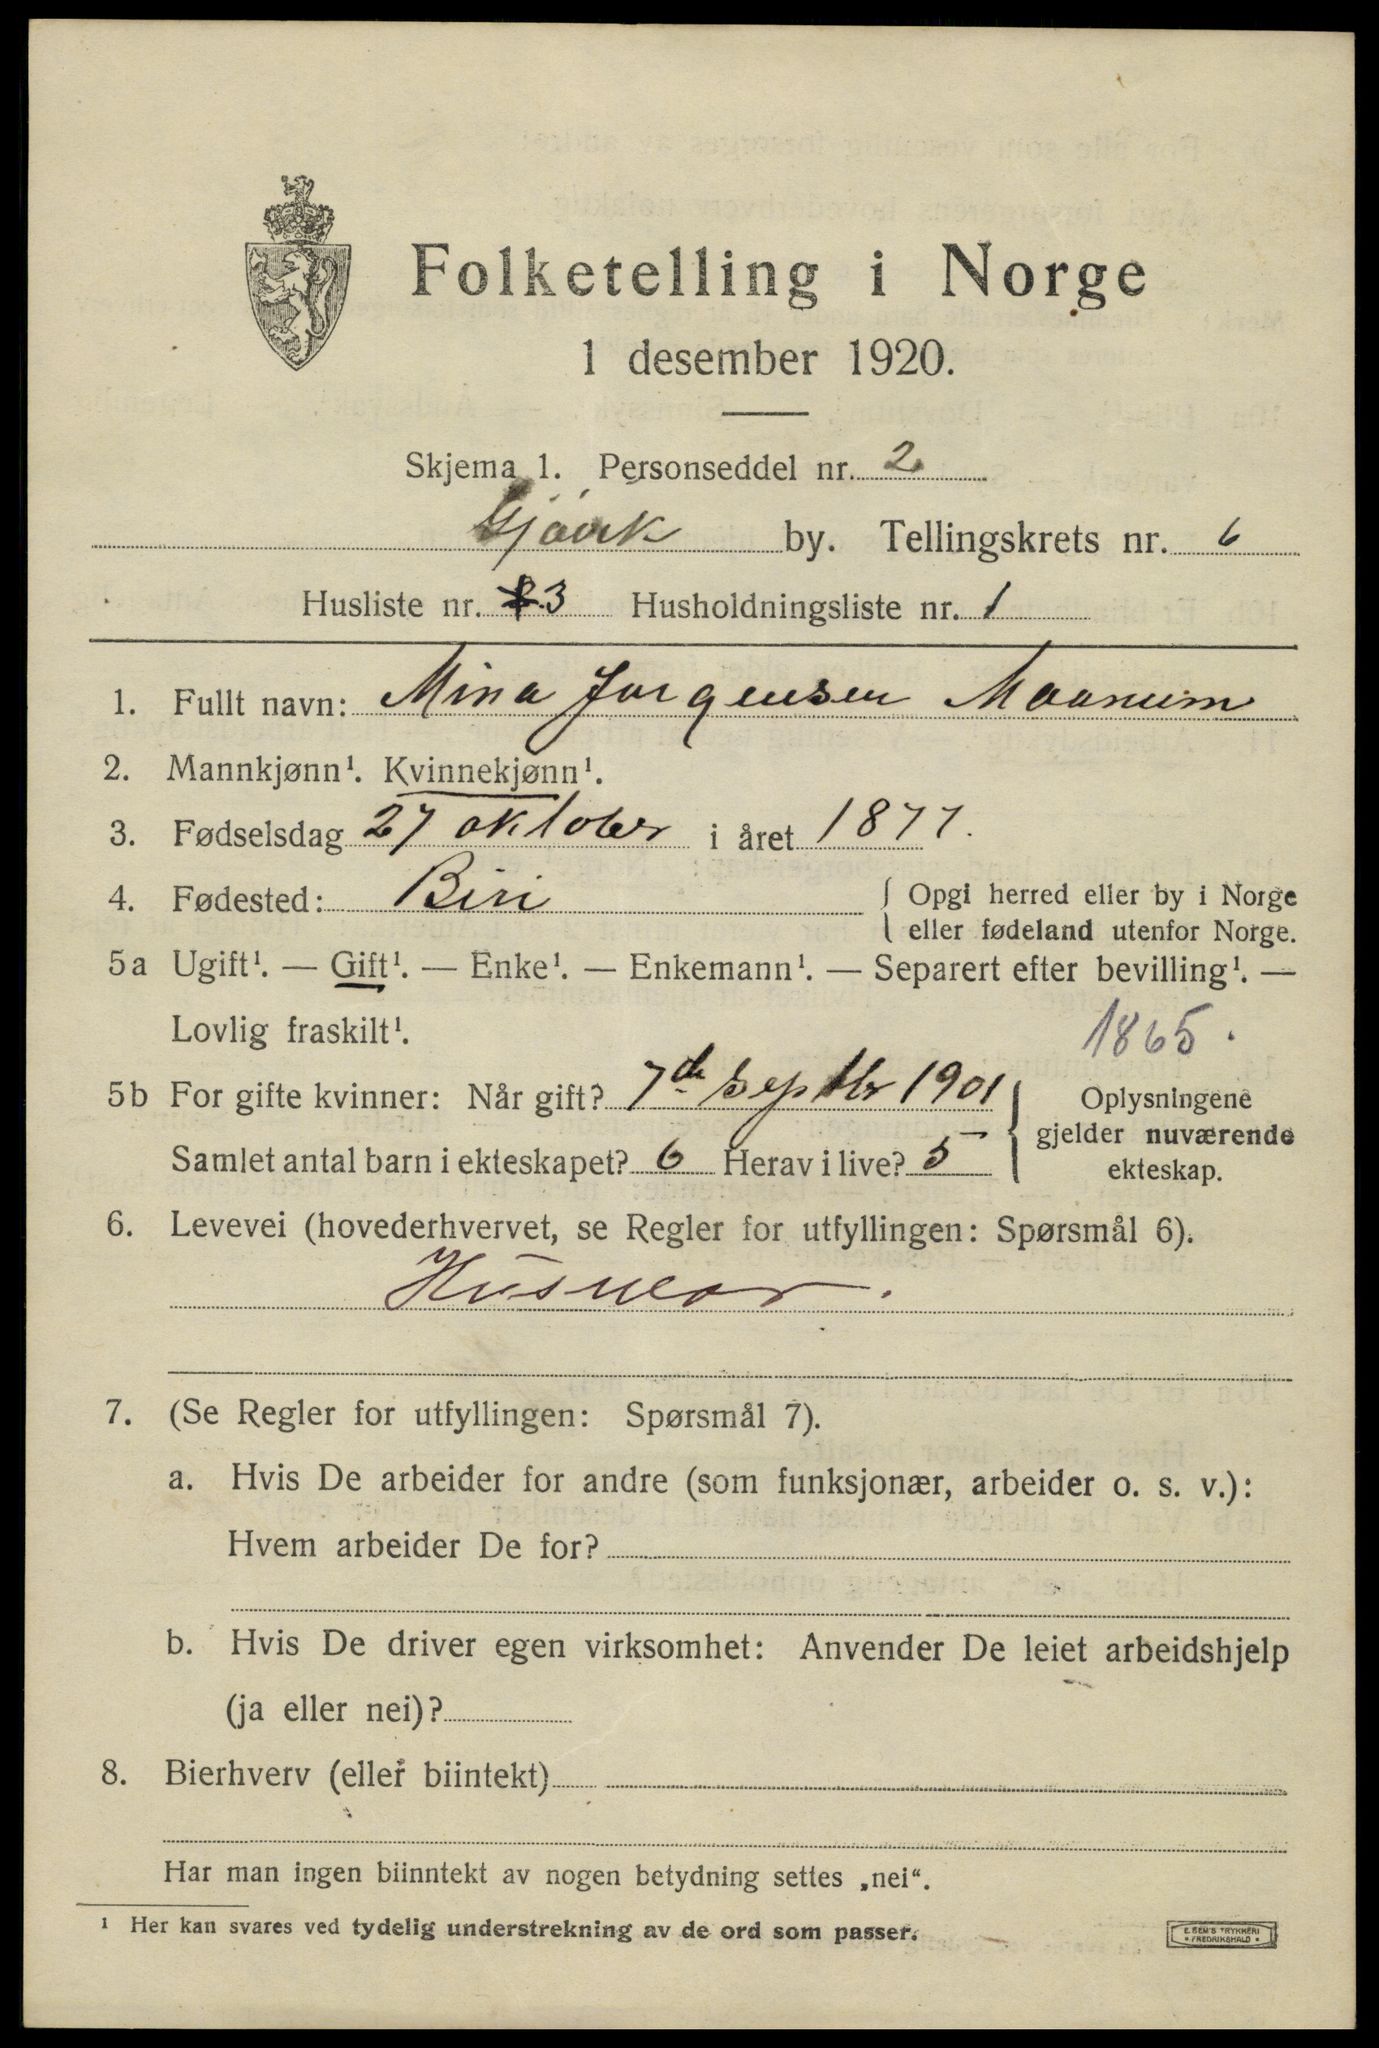 Folketelling i Norge
1 desember 1920.
Skjema 1. Personseddel nr. 2
Gjøvik by. Tellingskrets nr. 6
Husliste nr. 3 Husholdningsliste nr. 1
1. Fullt navn: Mina Jorgensen Maanum
2. Mannkjønn¹. Kvinnekjønn¹.
3. Fødselsdag 27 oktober i året 1877.
4. Fødested: Biri { Opgi herred eller by i Norge
eller fødeland utenfor Norge.
5a Ugift¹. — Gift¹. — Enke¹. — Enkemann¹. — Separert efter bevilling¹. —
Lovlig fraskilt¹. 1865.
5b For gifte kvinner: Når gift? 7de septbr 1901 } Oplysningene
gjelder nuværende
Samlet antal barn i ekteskapet? 6 Herav i live? 5 ekteskap.
6. Levevei (hovederhvervet, se Regler for utfyllingen: Spørsmål 6).
Husmor.
7. (Se Regler for utfyllingen: Spørsmål 7).
a. Hvis De arbeider for andre (som funksjonær, arbeider o. s. v.):
Hvem arbeider De for?
b. Hvis De driver egen virksomhet: Anvender De leiet arbeidshjelp
(ja eller nei)?
8. Bierhverv (eller biintekt)
Har man ingen biinntekt av nogen betydning settes „nei“.
¹ Her kan svares ved tydelig understrekning av de ord som passer.
E. SEM'S TRYKKERI
FREDRIKSHALD